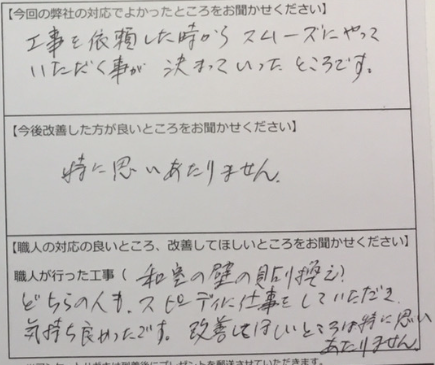 【今回の弊社の対応でよかったところをお聞かせください】
工事を依頼した時からスムーズにやって
いただく事が決まっていったところです。
【今後改善した方が良いところをお聞かせください】
特に思いあたりません。
【職人の対応の良いところ、改善してほしいところをお聞かせください】
職人が行った工事（和室の壁の貼り換え）
どちらの人も、スピーディに仕事をしていただき
気持ち良かったです。改善してほしいところは特に思い
あたりません。
後にプレゼントを郵送させていただきます。